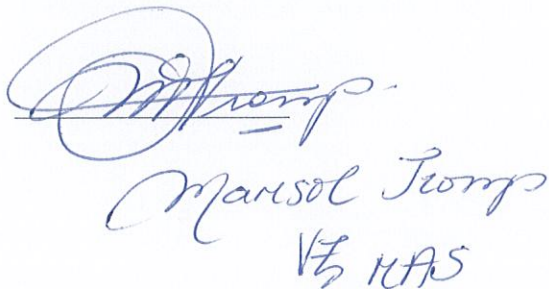 MTromp.
Marisol Tromp
VZ MAS